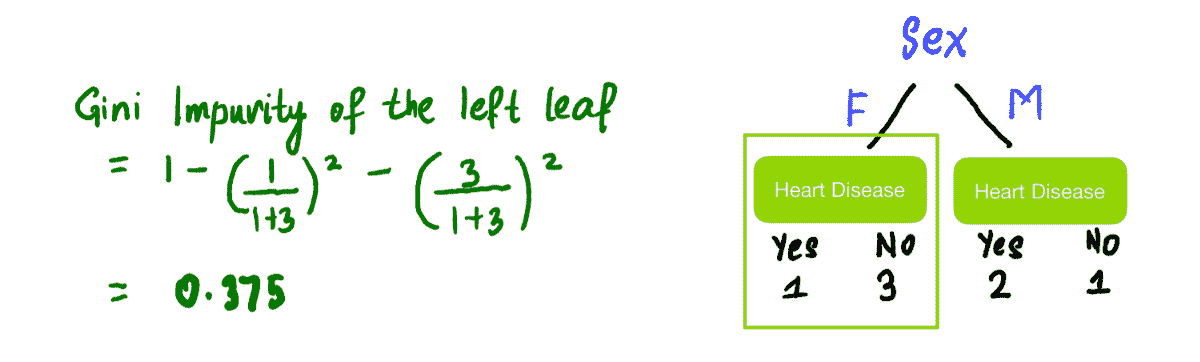 Gini Impurity of the left leaf
= 1 - (1/(1+3))² - (3/(1+3))²
= 0.375
Sex
F M
Heart Disease Heart Disease
Yes No Yes No
1 3 2 1